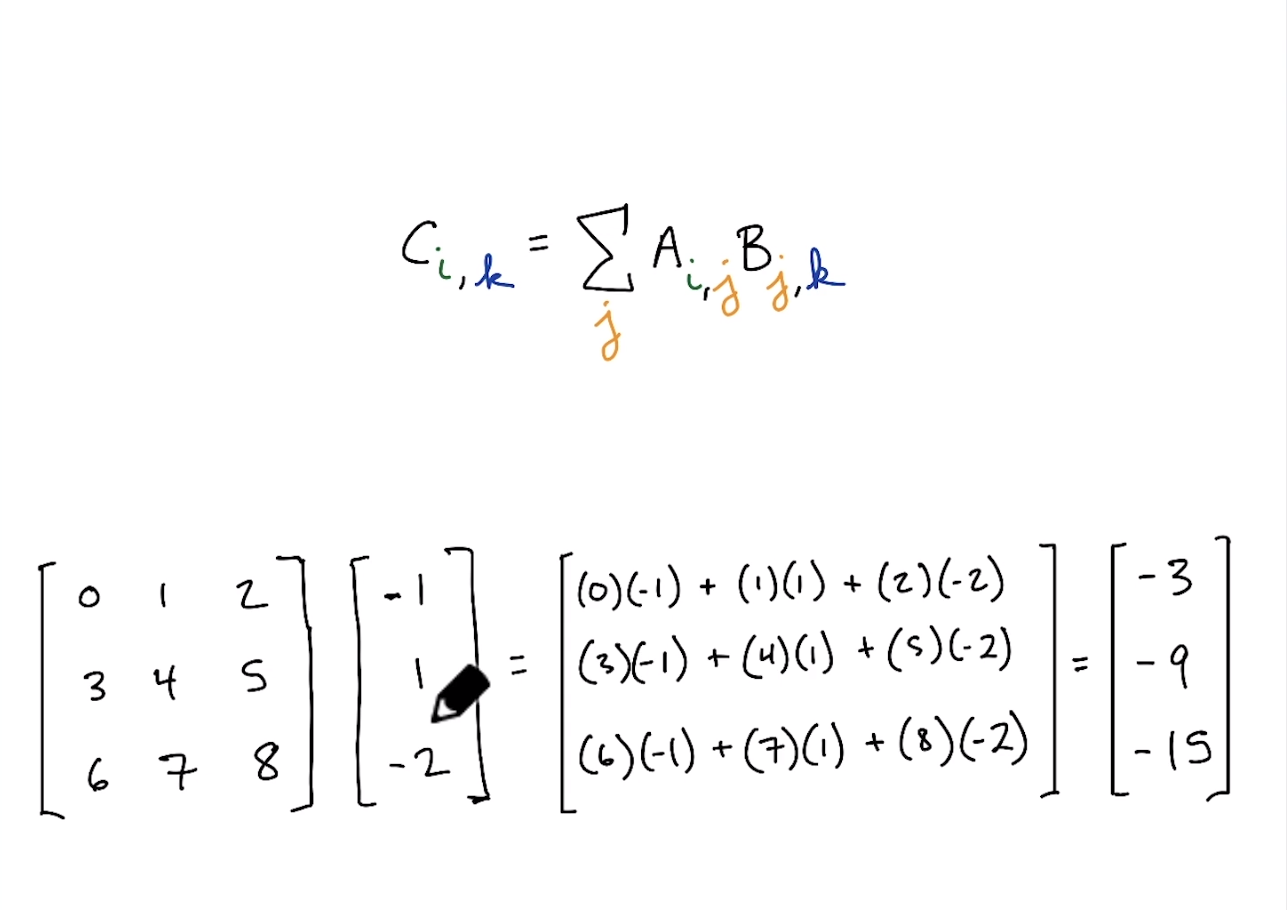 C_{i,k} = ∑_j A_{i,j} B_{j,k}
[0 1 2; 3 4 5; 6 7 8] [-1; 1; -2] = [(0)(-1) + (1)(1) + (2)(-2); (3)(-1) + (4)(1) + (5)(-2); (6)(-1) + (7)(1) + (8)(-2)] = [-3; -9; -15]